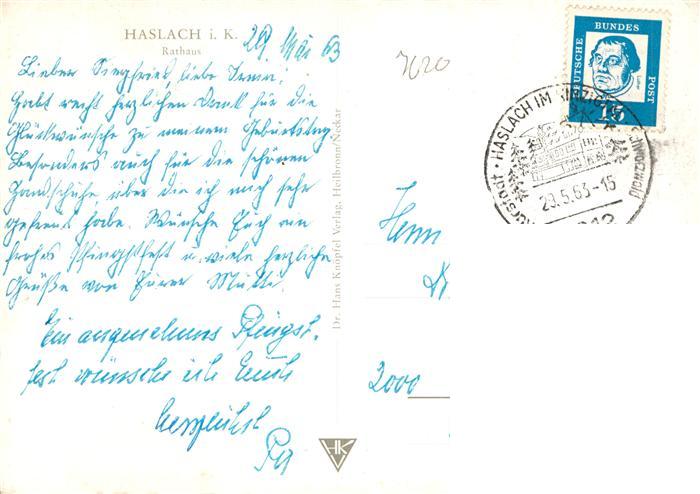 HASLACH i. K.
Rathaus
29. Mai 63
Lieber Siegfried, liebe Irmin!
Habt recht herzlichen Dank für die
Glückwünsche zu meinem Geburtstag.
Besonders auch für die schönen
Handschuhe, über die ich mich sehr
gefreut habe. Wünsche Euch ein
frohes Pfingstfest u. viele herzliche
Grüße von Eurer Mutti.
Ein angenehmes Pfingst-
fest wünsche ich Euch
herzlichst
Dr. Hans Knöpfel Verlag, Heilbronn/Neckar
HK
7620
DEUTSCHE BUNDES POST
Luther
15
HASLACH IM KINZIGTAL Schwarzwald
29.5.63-15
Herrn
2000